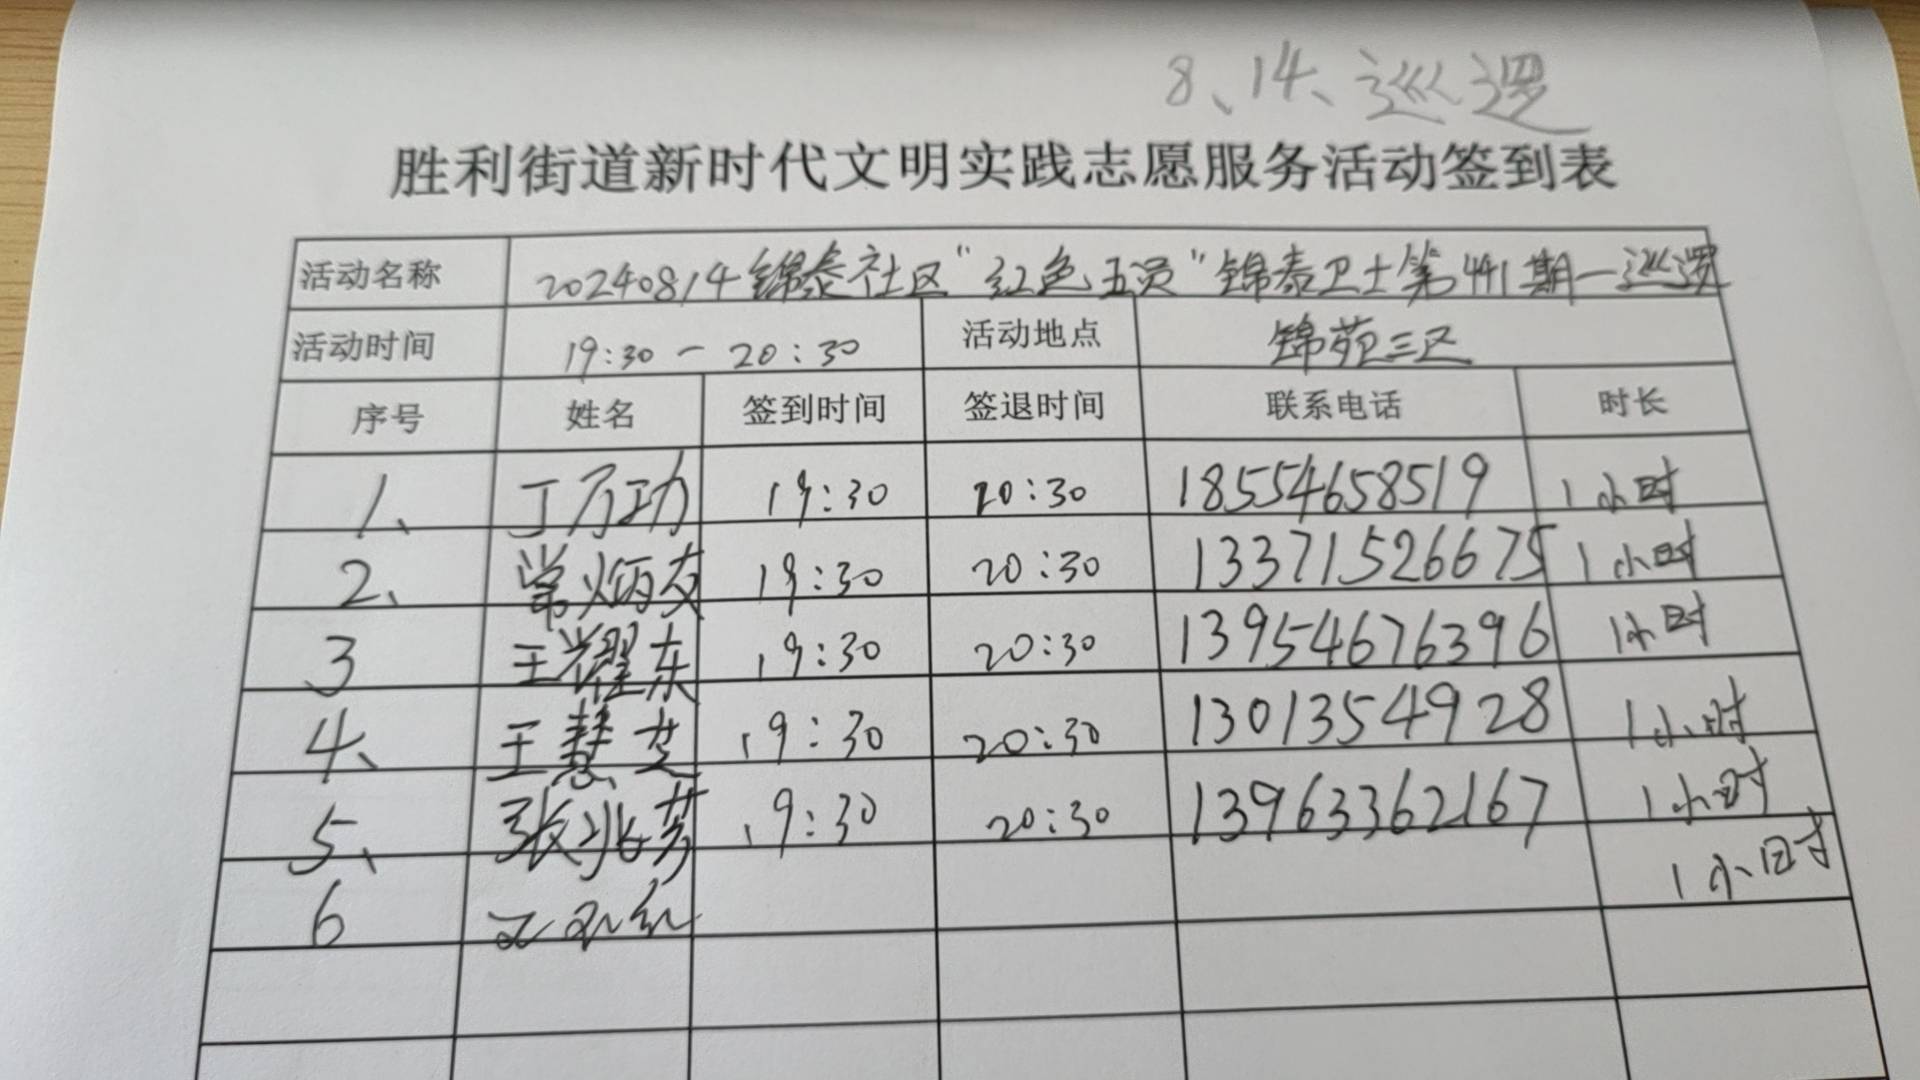 8、14、巡逻
胜利街道新时代文明实践志愿服务活动签到表
活动名称 20240814锦泰社区“红色五员”锦泰卫士第441期一巡逻
活动时间 19:30-20:30 活动地点 锦苑三区
序号 姓名 签到时间 签退时间 联系电话 时长
1、 丁万功 19:30 20:30 18554658519 1小时
2、 常炳友 19:30 20:30 13371526675 1小时
3 王耀东 19:30 20:30 13954676396 1小时
4、 王慧芝 19:30 20:30 13013549928 1小时
5、 张兆芳 19:30 20:30 13963362167 1小时
6 1小时